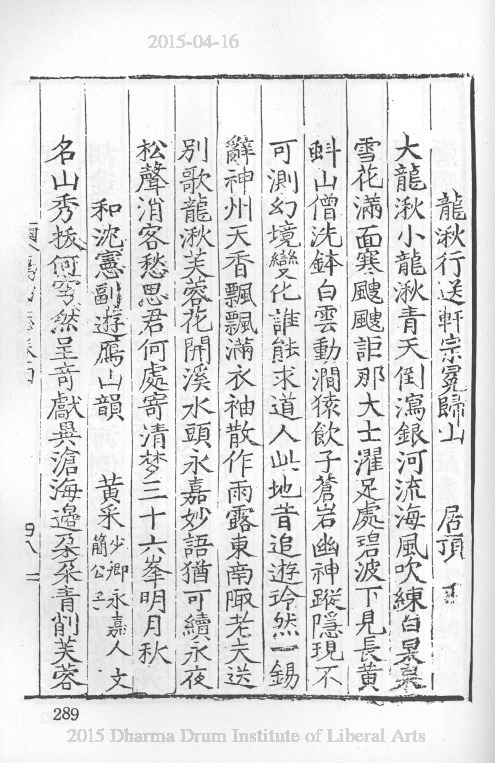 2015-04-16
龍湫行送軒宗冕歸山　居頂
大龍湫小龍湫青天倒瀉銀河流海風吹練白杲杲
雪花滿面寒颼颼詎那大士濯足處碧波下見長黃
蚪山僧洗鉢白雲動澗猿飲子蒼岩幽神蹤隱現不
可測幻境變化誰能求道人此地昔追遊玲然一錫
辭神州天香飄飄滿衣袖散作雨露東南陬老夫送
別歌龍湫芙蓉花開溪水頭永嘉妙語猶可續永夜
松聲消客愁思君何處寄清梦三十六峯明月秋
和沈憲副遊鴈山韻　黃采少卿永嘉人文簡公子
名山秀拔何穹然呈竒獻異滄海邊朶朶青削芙蓉
289
2015 Dharma Drum Institute of Liberal Arts